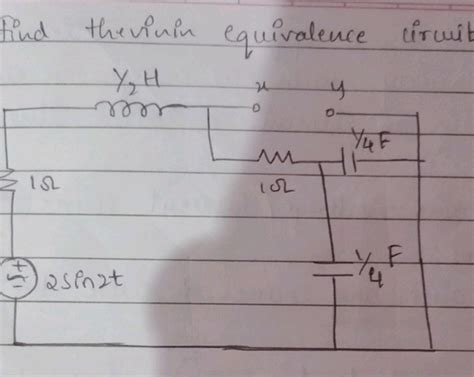 find thevinin equivalence circuit
Y2 H
x y
1/4 F
1Ω 1Ω
2sin2t
1/4 F